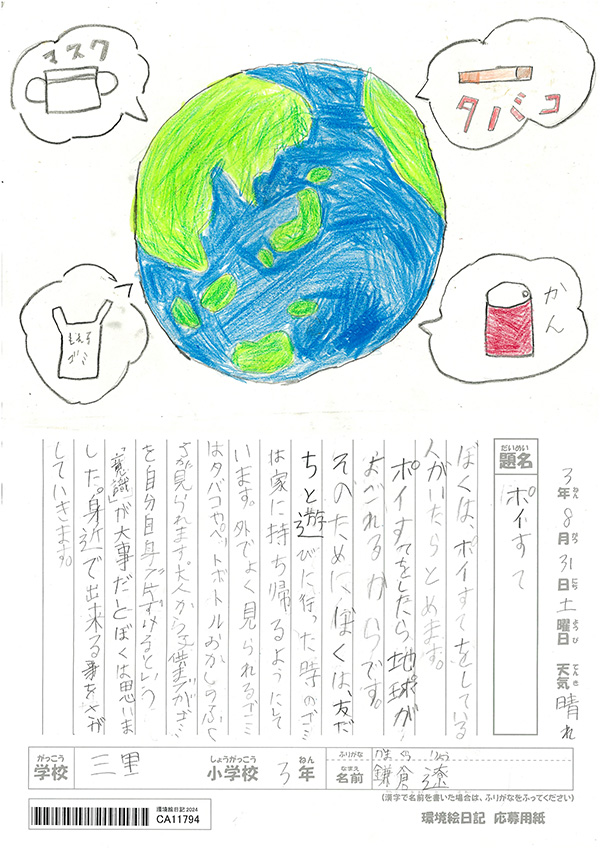 マスク
タバコ
もえる
ゴミ
かん
3年8月31日土曜日 天気晴れ
ねん がつ にち ようび てんき
だいめい
題名
ポイすて
ぼくは、ポイすてをしている
人がいたらとめます。
ポイすてをしたら地球が
よごれるからです。
そのために、ぼくは、友だ
ちと遊びに行った時のゴミ
は家に持ち帰るようにして
います。外でよく見られるゴミ
はタバコやペットボトルおかしのふく
が見られます大人から子供まで
を自分自身で片ずけるという
「意識」が大事だとぼくは思いま
した。身近で出来る事をさが
していきます。
がっこう しょうがっこう ねん
学校 三里 小学校 3年
ふりがな かまくら りょう
なまえ
名前 鎌倉 遼
(漢字で名前を書いた場合は、ふりがなをふってください)
環境絵日記2024
CA11794
環境絵日記 応募用紙